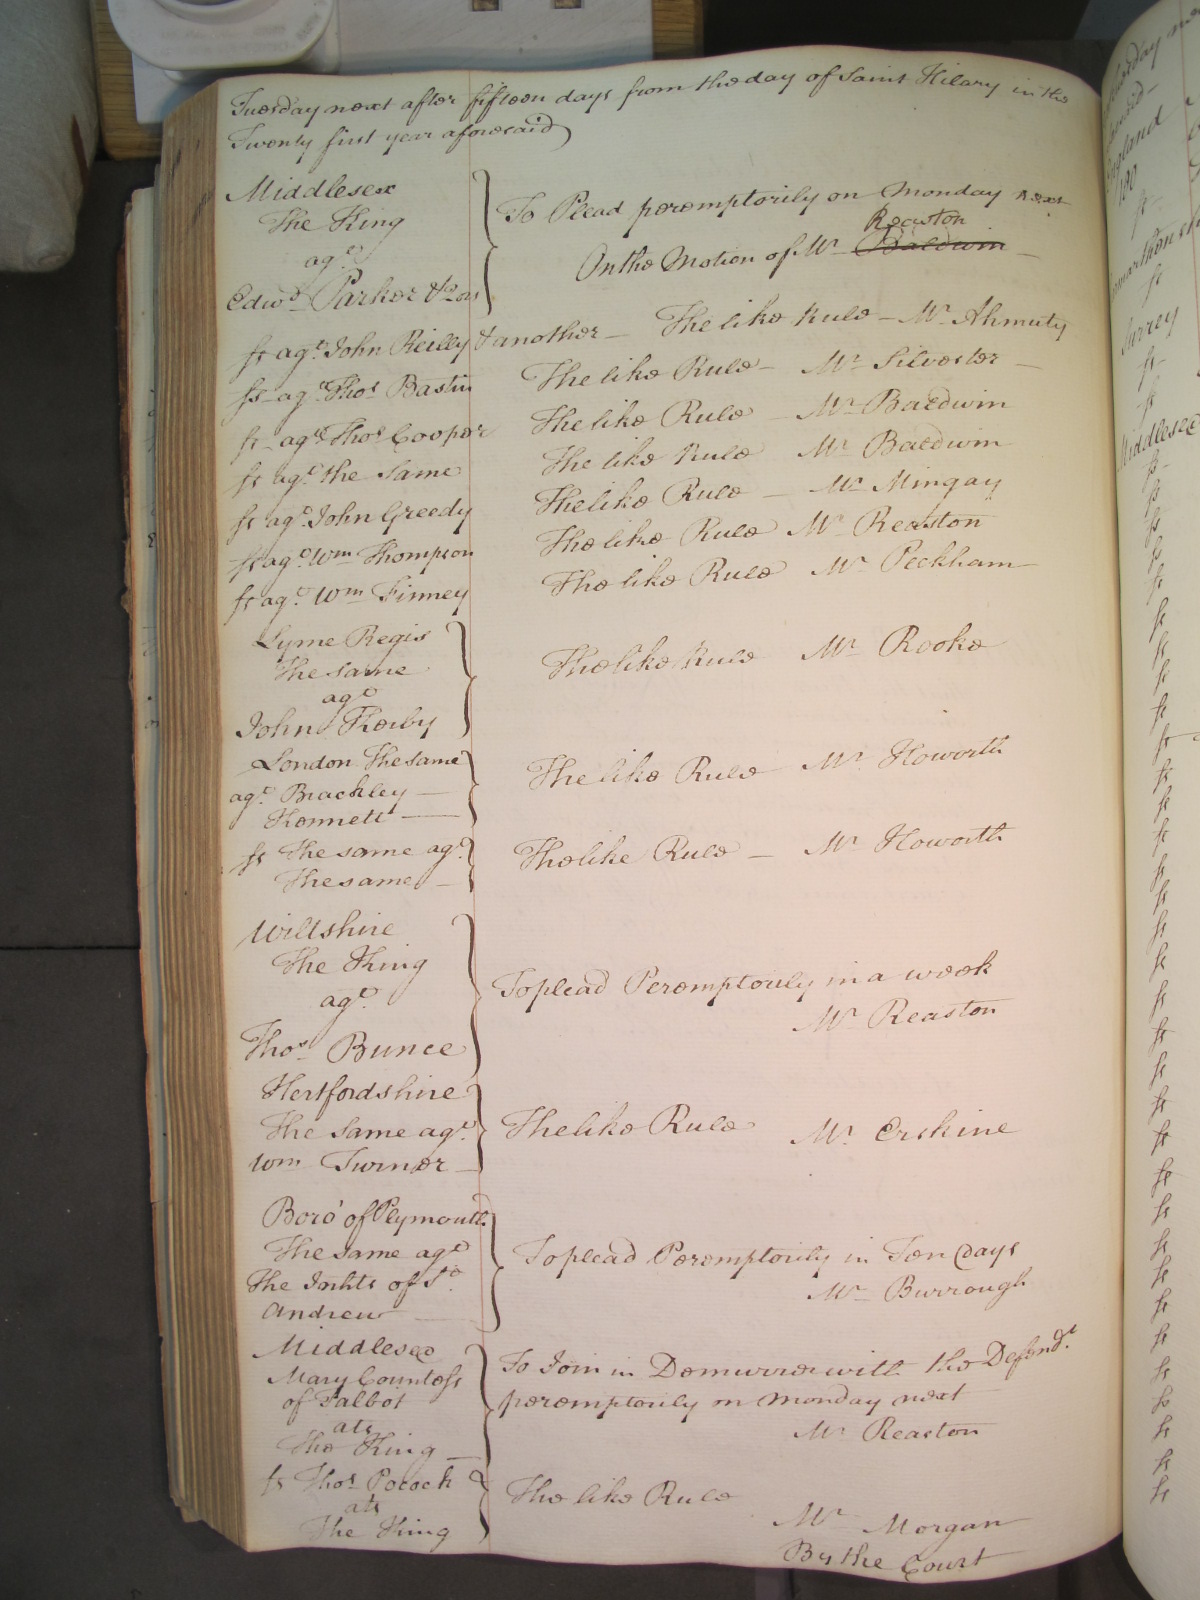 Tuesday next after fifteen days from the day of Saint Hilary in the
Twenty first year aforesaid
Middlesex
The King
agt
Edwd Parker & ors
To Plead peremptorily on Monday next
Reaston
On the Motion of Mr Baldwin
fs agt John Reilly & another - The like Rule - Mr Ahmuty
fs agt Thos Bastin The like Rule - Mr Silvester
fs agt Thos Cooper The like Rule Mr Baldwin
fs agt the Same The like Rule Mr Baldwin
fs agt John Greedy The like Rule - Mr Mingay
fs agt Wm Thompson The like Rule Mr Reaston
fs agt Wm Finney The like Rule Mr Peckham
Lyme Regis
The same
agt
John Kerby
The like Rule Mr Rooke
London The same
agt Brackley
Kennett
The like Rule Mr Howorth
fs The same agt
The same
The like Rule - Mr Howorth
Wiltshire
The King
agt
Thos Bunce
To plead Peremptorily in a week
Mr Reaston
Hertfordshire
The Same agt
Wm Turner
The like Rule Mr Erskine
Boro' of Plymouth
The Same agt
The Inhts of St
Andrew
To plead Peremptorily in Ten Days
Mr Burrough
Middlesex
Mary Countess
of Talbot
ats
The King
To Join in Demurrer with the Defendt
peremptorily on Monday next
Mr Reaston
fs Thos Pocock
ats
The King
The like Rule
Mr Morgan
By the Court
England
Surrey
Middlesex